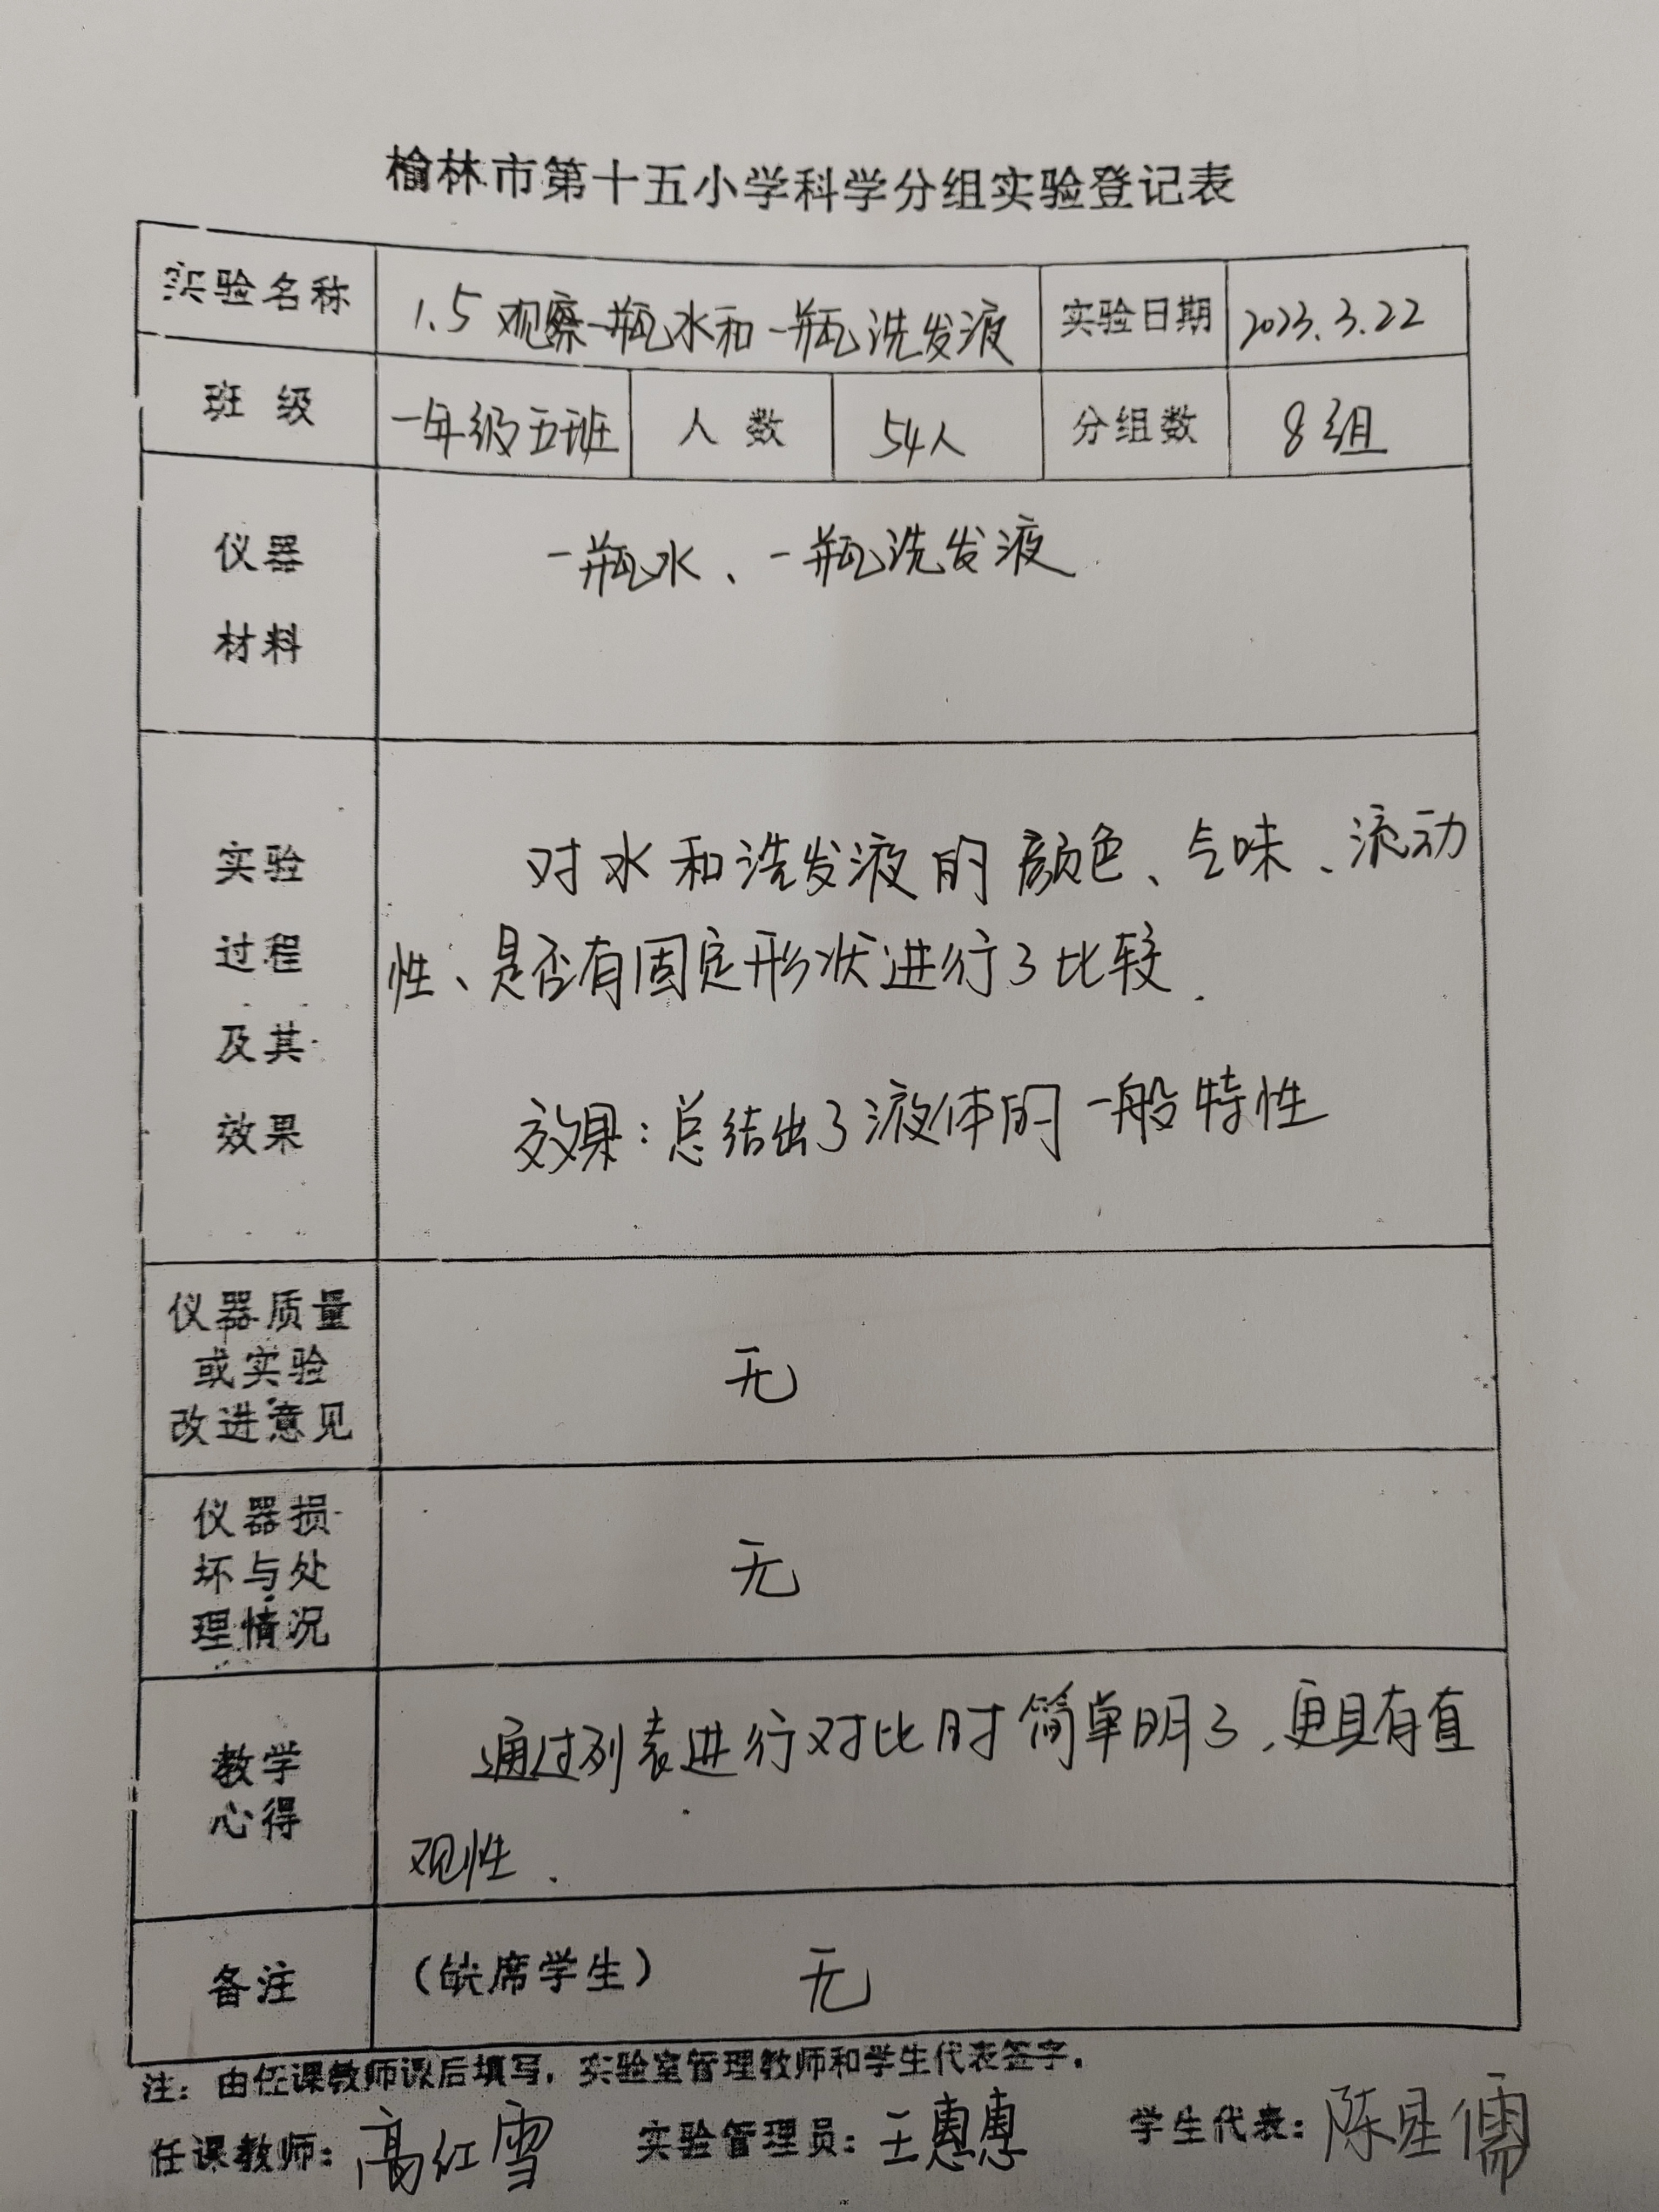 榆林市第十五小学科学分组实验登记表
实验名称 1.5 观察一瓶水和一瓶洗发液 实验日期 2023.3.22
班级 一年级五班 人数 54人 分组数 8组
仪器
材料
一瓶水、一瓶洗发液
实验
过程
及其
效果
对水和洗发液的颜色、气味、流动
性、是否有固定形状进行了比较.
效果:总结出了液体的一般特性
仪器质量
或实验
改进意见
无
仪器损
坏与处
理情况
无
教学
心得
通过列表进行对比时简单明了,更具有直
观性.
备注 (缺席学生) 无
注:由任课教师课后填写,实验室管理教师和学生代表签字.
任课教师:高红雪 实验管理员:王惠惠 学生代表:陈星儒